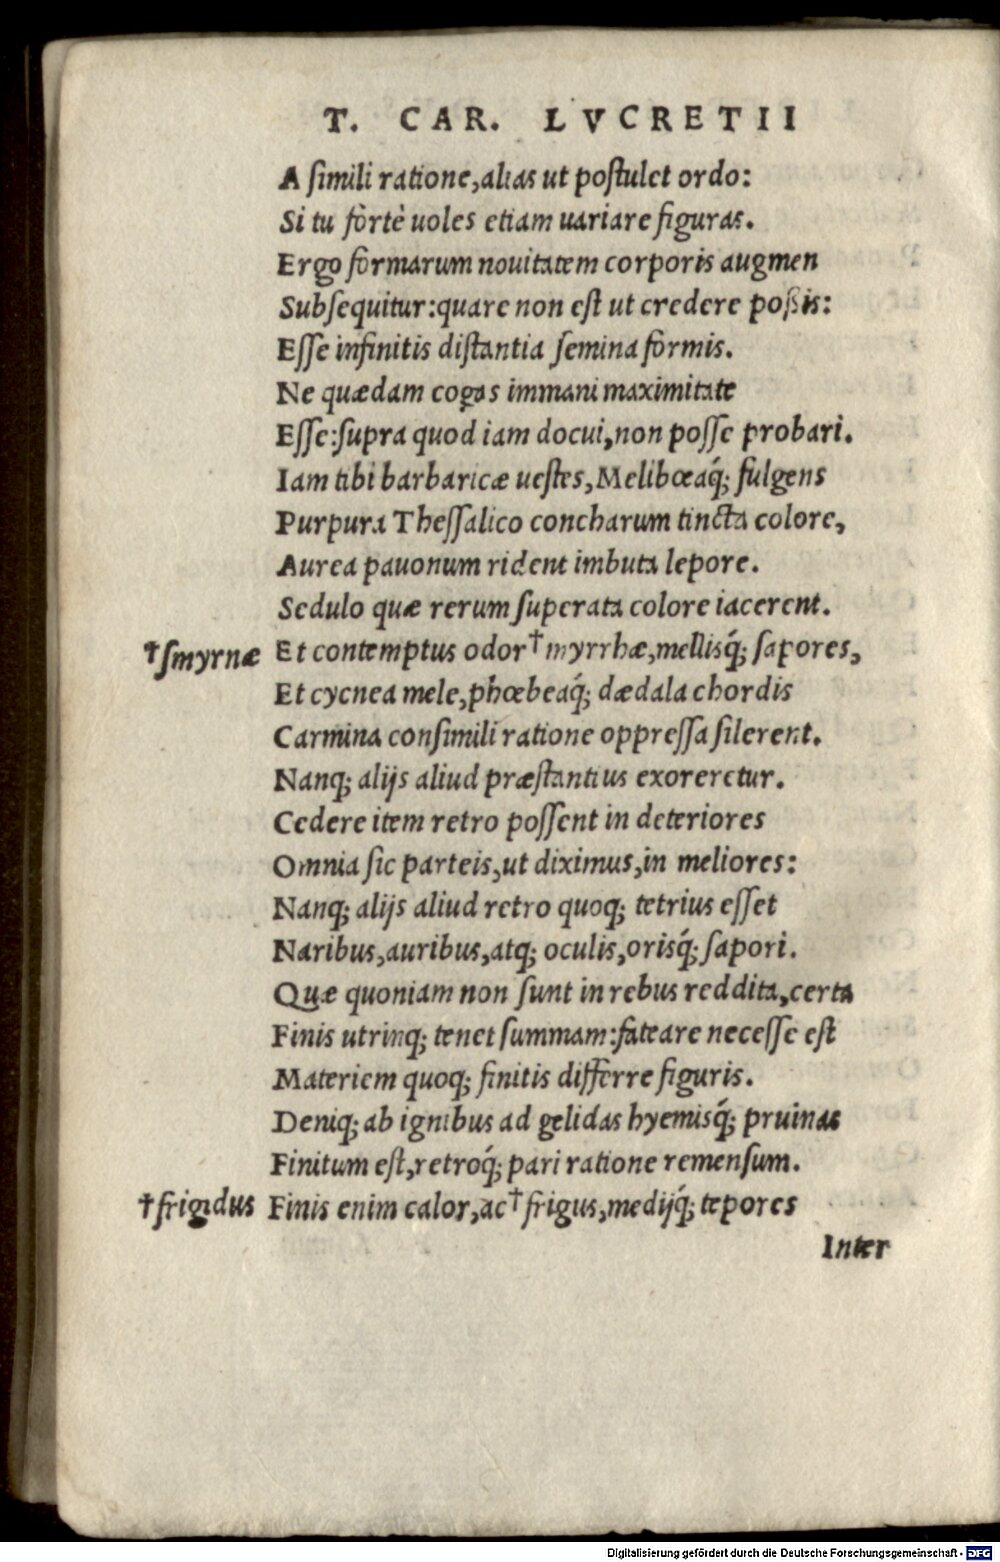 T. CAR. LVCRETII
A ſimili ratione,alias ut poſtulet ordo:
Si tu fortè uoles etiam uariare figuras.
Ergo formarum nouitatem corporis augmen
Subſequitur:quare non eſt ut credere poßis:
Eſſe infinitis diſtantia ſemina formis.
Ne quædam cogas immani maximitate
Eſſe:ſupra quod iam docui,non poſſe probari.
Iam tibi barbaricæ ueſtes,Melibœaq́; fulgens
Purpura Theſſalico concharum tincta colore,
Aurea pauonum rident imbuta lepore.
Sedulo quæ rerum ſuperata colore iacerent.
†ſmyrnæ Et contemptus odor †myrrhæ,mellisq́; ſapores,
Et cycnea mele,phœbeaq́; dædala chordis
Carmina conſimili ratione oppreſſa ſilerent.
Nanq; alijs aliud præſtantius exoreretur.
Cedere item retro poſſent in deteriores
Omnia ſic parteis,ut diximus,in meliores:
Nanq; alijs aliud retro quoq; tetrius eſſet
Naribus,auribus,atq; oculis,orisq́; ſapori.
Quæ quoniam non ſunt in rebus reddita,certa
Finis utrinq; tenet ſummam:fateare neceſſe eſt
Materiem quoq; finitis differre figuris.
Deniq; ab ignibus ad gelidas hyemisq́; pruinas
Finitum eſt,retroq́; pari ratione remenſum.
†frigidus Finis enim calor,ac †frigus,medijq́; tepores
Inter
Digitalisierung gefördert durch die Deutsche Forschungsgemeinschaft - DFG